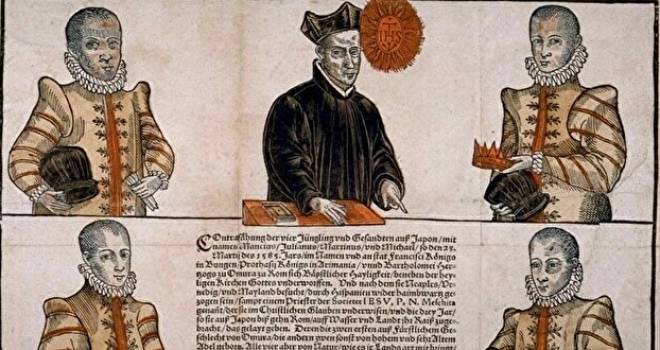 IHS
COntrafähung der vier Jüngling vnd Gesandten auß Japon/mit
namen Mancius/Julianus/Martinus/vnd Michael/so den 23.
Martij des 1585. Jars/im Namen vnd an stat Francisci Königs
in Bungen/Prothasij Königs in Arimania/vnnd Bartholomei Her-
zogs zu Omura zu Rom sich Bäpstlicher Hayligkeit/beneben der hey-
ligen Kirchen Gottes vnderworffen. Vnd nach dem sie Neaples/Ve-
nedig/vnd Mayland besucht/durch Hispanien wider haimbwartz ge-
zogen sein/sampt einem Priester der Societet IESV, P. N. Meschita
genañt/der sie im Christlichen Glauben vnderwisen/vnd die drey Jar/
so sie auß Japon biß gehn Rom auff Wasser vnd Land jhr Raiß zuge-
bracht/das gelayt geben. Deren die zwen ersten auß Fürstlichem Ge-
schlecht von Omura/die andern zwen sonst von hohem vnd sehr Altem
Adel geborn. Alle vier aber von Natur/wie es in Landsart mit bringt/